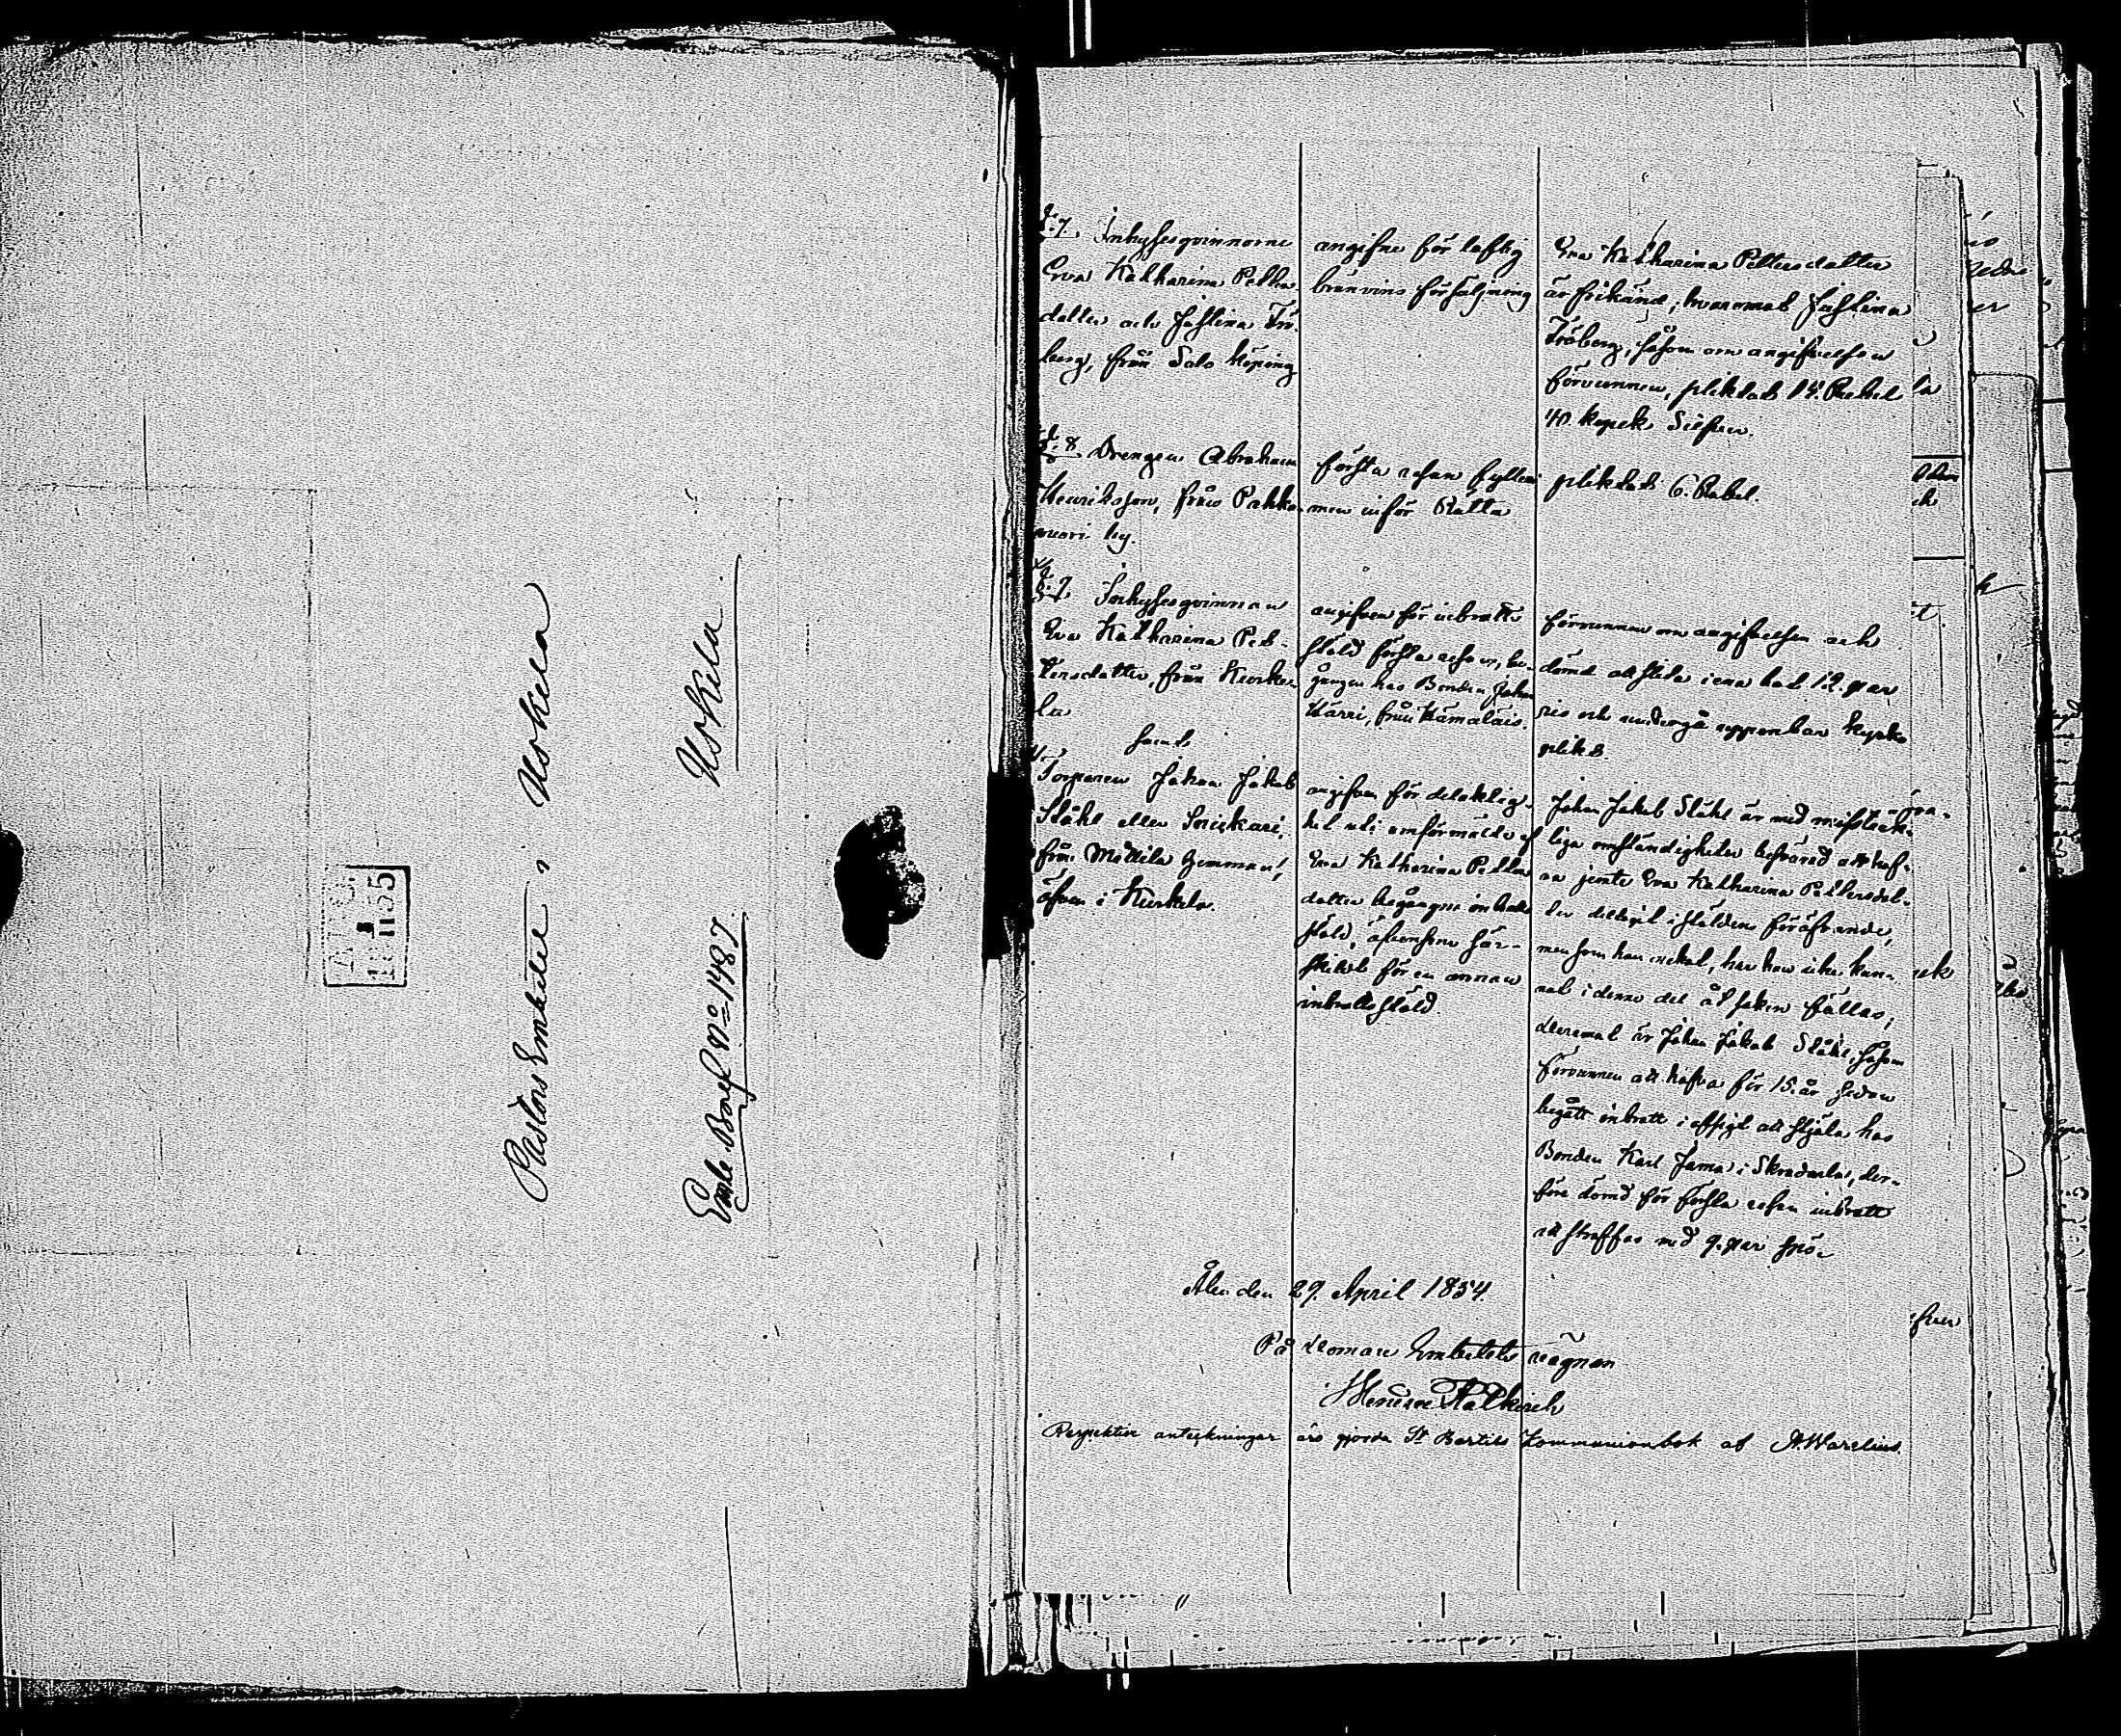 Pastors Embetet i Uskela
Embs Bref No 1487. Uskela.
1 1155
§ 7. Inhysesqvinnorne
Eva Katharina Petters
dotter och Justina Frö-
berg, från Salo köping
angifne för laftig
bränvins försäljning
Eva Katharina Pettersdotter
är frikänd; hvaremot Justina
Fröberg, såsom om angifvelsen
förvunnen, pliktat 14 Rubel
40. kopek Silfver.
§ 8. Drengen Abraham
Henriksson, från Pahka-
vuori by.
första resan fylleri
men inför Rätta
pliktat 6. Rubel.
§ 9. Inhysesqvinnan
Eva Katharina Pet-
tersdotter, från Kurke-
la
angifven för inbrotts
stöld första resan, be-
gången hos Bonden Johan
Härri, från Hämäläis.
förvunnen om angifvelsen och
dömd att slita iena hat 12. par
ris och undergå uppenbar kyrko
plikt.
samt
Torparen Johan Jakob
Ståhl eller Snickari,
från Mottila hemman,
äfven i Kurkela.
angifven för delaktig-
het uti omförmälde af
Eva Katharina Petters
dotter begångne inbrotts
stöld, äfvensom sär-
skildt för en annan
inbrotts stöld.
Johan Jakob Ståhl är med misstänk-
liga omständigheter besvärad att haf-
va jemte Eva Katharina Pettersdot-
ter deltagit i stöldens föröfvande,
men som han nekat, har han icke kun-
nat i denna del åt saken fällas;
deremot är Johan Jakob Ståhl, såsom
förvunnen att hafva för 15. år sedan
begått inbrott i afsigt att stjäla hos
Bonden Karl Jama i Skradarla, der-
före dömd för första resan inbrott
att straffas med 9. par spö.
Åbo den 29. April 1854.
På Domare Embetets vägnar
Kalkirch
Respektive anteckningar äro gjorda St Bertils Kommunionbok af A. Warelius.